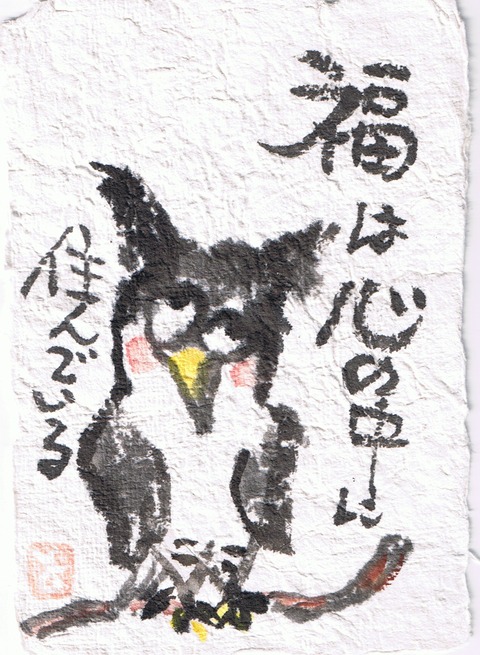 福は心の中に
住んでいる